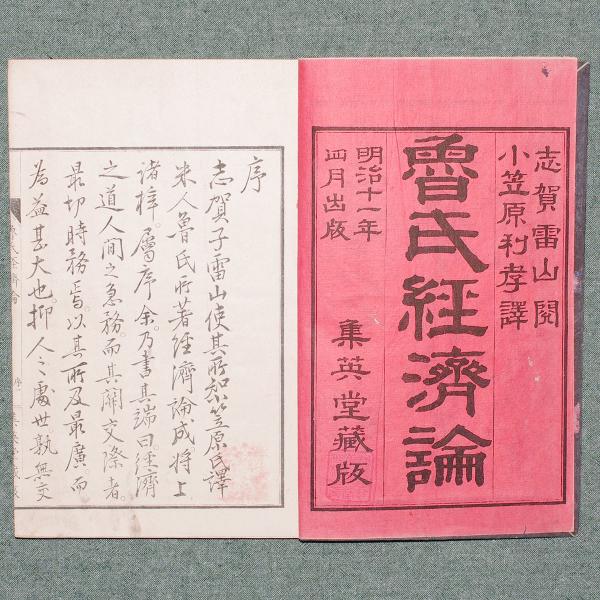 志賀雷山閲
小笠原利孝譯
魯氏経濟論
明治十一年
四月出版
集英堂藏版
序
志賀子雷山使其所知笠原氏譯
米人魯氏所著經濟論成將上
諸梓屬序余乃書其端曰經濟
之道人間之急務而其關交際者
最切時務焉以其所及最廣而
為益甚大也抑人之處世孰無交